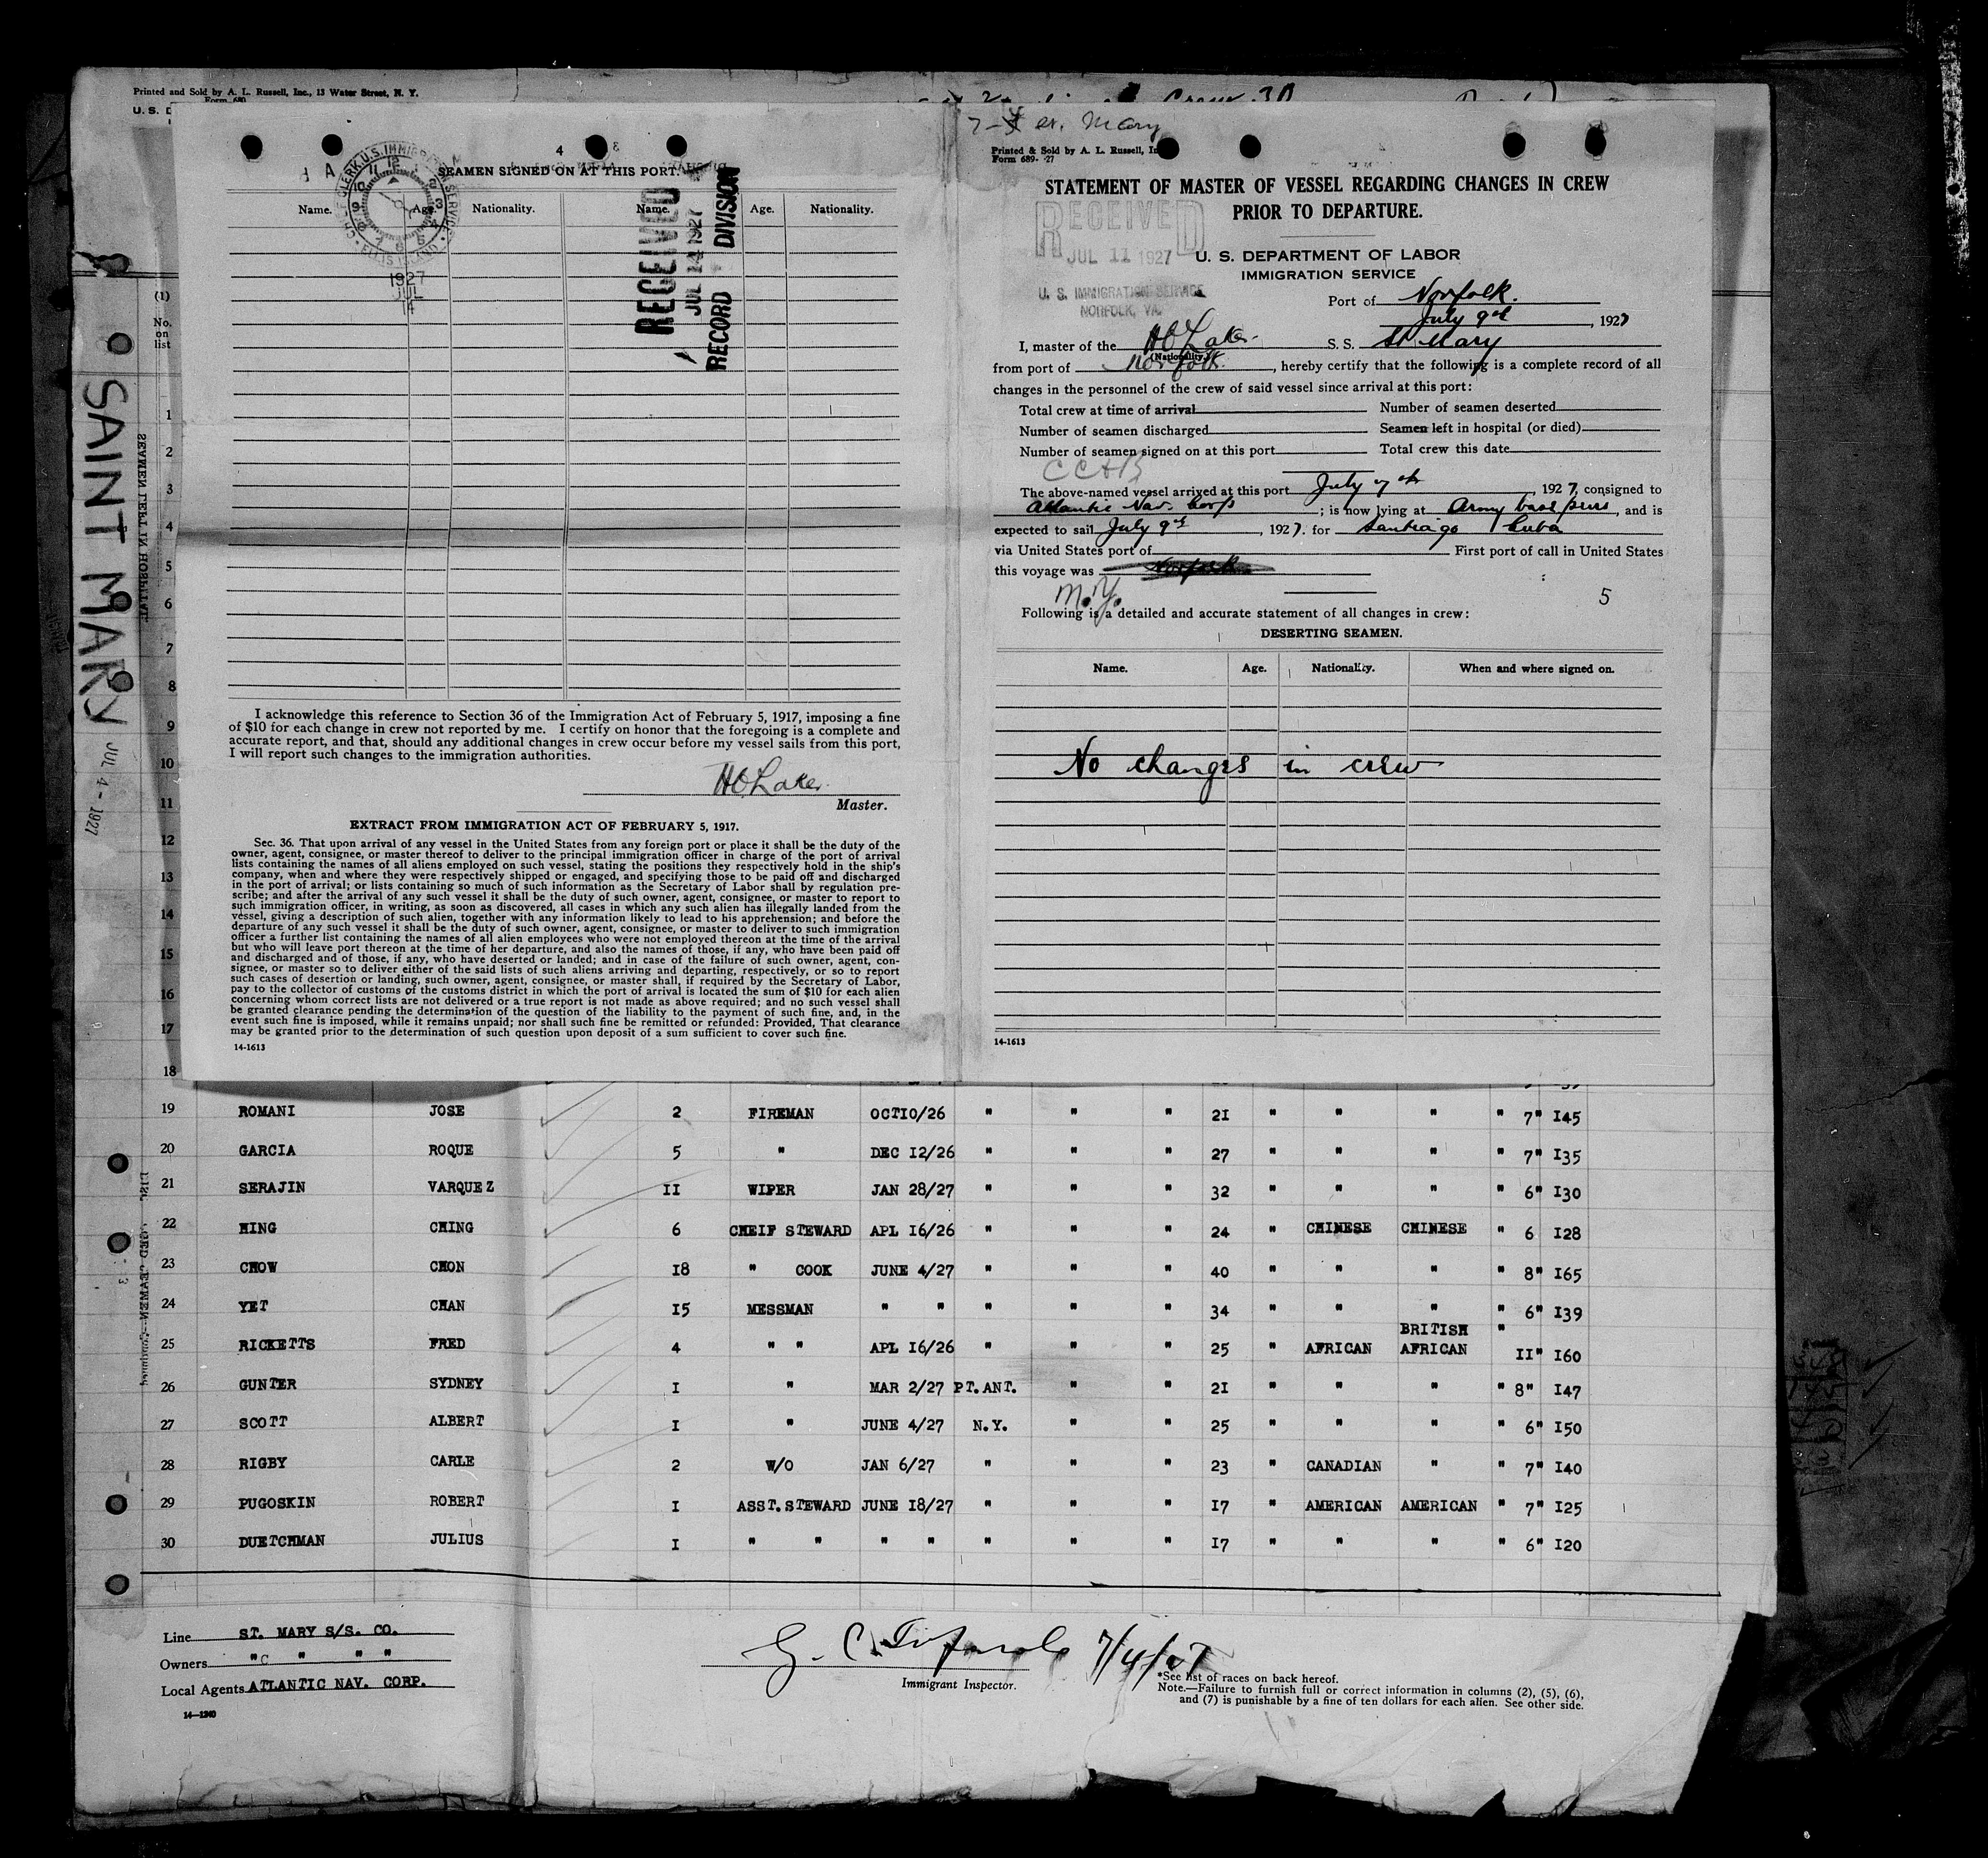 Printed and Sold by A. L. Russell, Inc., 13 Water Street, N. Y.
Form 680
U. S. D
SAINT MARY
JUL 4 - 1927
(1)
No.
on
list
1
2
3
4
5
6
7
8
9
10
11
12
13
14
15
16
17
18
SEAMEN LEFT IN HOSPITAL
CHIEF CLERK, U.S. IMMIGRATION SERVICE
ELLIS ISLAND
1927
JUL
14
SEAMEN SIGNED ON AT THIS PORT.
Name. Age. Nationality. Name. Age. Nationality.
RECEIVED
JUL 14 1927
RECORD DIVISION
I acknowledge this reference to Section 36 of the Immigration Act of February 5, 1917, imposing a fine
of $10 for each change in crew not reported by me. I certify on honor that the foregoing is a complete and
accurate report, and that, should any additional changes in crew occur before my vessel sails from this port,
I will report such changes to the immigration authorities.
Master.
EXTRACT FROM IMMIGRATION ACT OF FEBRUARY 5, 1917.
Sec. 36. That upon arrival of any vessel in the United States from any foreign port or place it shall be the duty of the
owner, agent, consignee, or master thereof to deliver to the principal immigration officer in charge of the port of arrival
lists containing the names of all aliens employed on such vessel, stating the positions they respectively hold in the ship's
company, when and where they were respectively shipped or engaged, and specifying those to be paid off and discharged
in the port of arrival; or lists containing so much of such information as the Secretary of Labor shall by regulation pre-
scribe; and after the arrival of any such vessel it shall be the duty of such owner, agent, consignee, or master to report to
such immigration officer, in writing, as soon as discovered, all cases in which any such alien has illegally landed from the
vessel, giving a description of such alien, together with any information likely to lead to his apprehension; and before the
departure of any such vessel it shall be the duty of such owner, agent, consignee, or master to deliver to such immigration
officer a further list containing the names of all alien employees who were not employed thereon at the time of the arrival
but who will leave port thereon at the time of her departure, and also the names of those, if any, who have been paid off
and discharged and of those, if any, who have deserted or landed; and in case of the failure of such owner, agent, con-
signee, or master so to deliver either of the said lists of such aliens arriving and departing, respectively, or so to report
such cases of desertion or landing, such owner, agent, consignee, or master shall, if required by the Secretary of Labor,
pay to the collector of customs of the customs district in which the port of arrival is located the sum of $10 for each alien
concerning whom correct lists are not delivered or a true report is not made as above required; and no such vessel shall
be granted clearance pending the determination of the question of the liability to the payment of such fine, and, in the
event such fine is imposed, while it remains unpaid; nor shall such fine be remitted or refunded: Provided, That clearance
may be granted prior to the determination of such question upon deposit of a sum sufficient to cover such fine.
14-1613
Mary
Printed & Sold by A. L. Russell, In
Form 689- -27
STATEMENT OF MASTER OF VESSEL REGARDING CHANGES IN CREW
PRIOR TO DEPARTURE.
RECEIVED
JUL 11 1927
U. S. IMMIGRATION SERVICE
NORFOLK, VA.
U. S. DEPARTMENT OF LABOR
IMMIGRATION SERVICE
Port of Norfolk.
July 9th, 1927
I, master of the S. S. St Mary
(Nationality.)
from port of Norfolk, hereby certify that the following is a complete record of all
changes in the personnel of the crew of said vessel since arrival at this port:
Total crew at time of arrival Number of seamen deserted
Number of seamen discharged Seamen left in hospital (or died)
Number of seamen signed on at this port Total crew this date
The above-named vessel arrived at this port July 7th, 1927, consigned to
Atlantic Nav. Corp; is now lying at Army base piers, and is
expected to sail July 9th, 1927. for Santiago Cuba
via United States port of First port of call in United States
this voyage was Norfolk
N.Y.
5
Following is a detailed and accurate statement of all changes in crew:
DESERTING SEAMEN.
Name. Age. Nationality. When and where signed on.
No changes in crew
14-1613
19 ROMANI JOSE 2 FIREMAN OCT10/26 " " " 21 " " " " 7" 145
20 GARCIA ROQUE 5 " DEC 12/26 " " " 27 " " " " 7" 135
21 SERAJIN VARQUEZ 11 WIPER JAN 28/27 " " " 32 " " " " 6" 130
22 HING CHING 6 CHEIF STEWARD APL 16/26 " " " 24 " CHINESE CHINESE " 6 128
23 CHOW CHON 18 " COOK JUNE 4/27 " " " 40 " " " " 8" 165
24 YET CHAN 15 MESSMAN " " " " " 34 " " " " 6" 139
25 RICKETTS FRED 4 " " APL 16/26 " " " 25 " AFRICAN BRITISH AFRICAN " 11" 160
26 GUNTER SYDNEY 1 " MAR 2/27 PT.ANT. " " 21 " " " " 8" 147
27 SCOTT ALBERT 1 " JUNE 4/27 N.Y. " " 25 " " " " 6" 150
28 RIGBY CARLE 2 W/O JAN 6/27 " " " 23 " CANADIAN " " 7" 140
29 PUGOSKIN ROBERT 1 ASST.STEWARD JUNE 18/27 " " " 17 " AMERICAN AMERICAN " 7" 125
30 DUETCHMAN JULIUS 1 " " " " " " " 17 " " " " 6" 120
Line ST. MARY S/S. CO.
Owners "C " " "
Local Agents ATLANTIC NAV. CORP.
14—1240
7/4/27
Immigrant Inspector.
*See list of races on back hereof.
Note.—Failure to furnish full or correct information in columns (2), (5), (6),
and (7) is punishable by a fine of ten dollars for each alien. See other side.